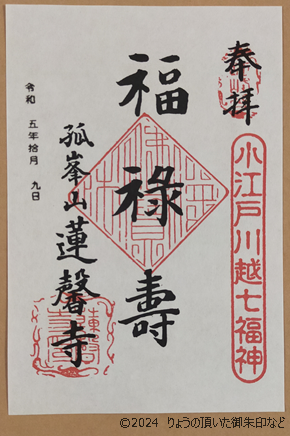 奉拝
小江戸川越七福神
福禄壽
孤峯山蓮馨寺
令和 五年拾月 九日
©2024 りょうの頂いた御朱印など